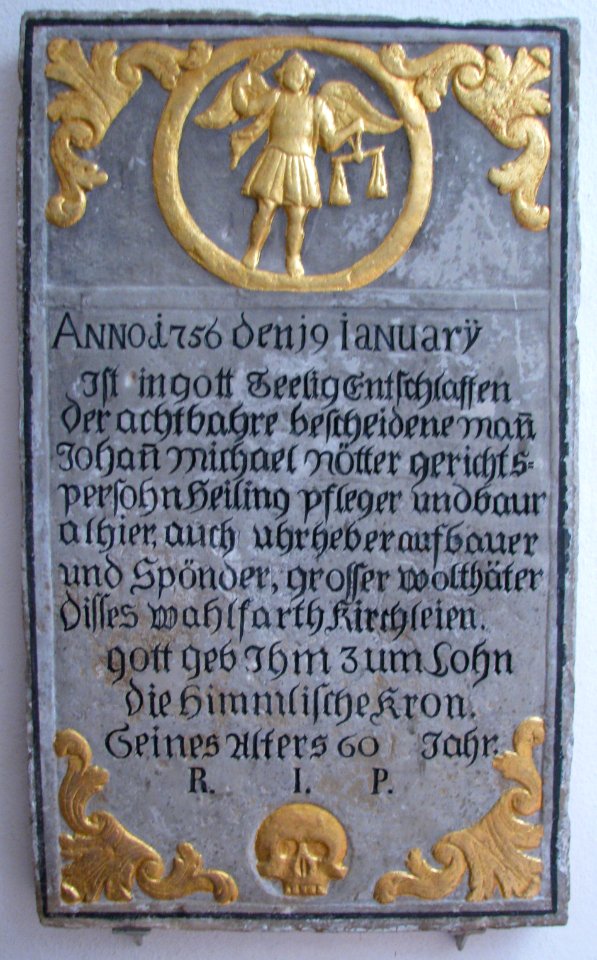 ANNO.1756 den 19 IANUARÿ
Ist in gott Seelig Entschlaffen
der achtbahre bescheidene man̄
Johan̄ Michael Nötter gerichts=
persohn Heiling pfleger und baur
alhier, auch uhrheber aufbauer
und Spönder, grosser wolthäter
disses wahlfarth Kirchleien.
gott geb Ihm zum Lohn
die Himmlische Kron.
Seines Alters 60 Jahr.
R. I. P.